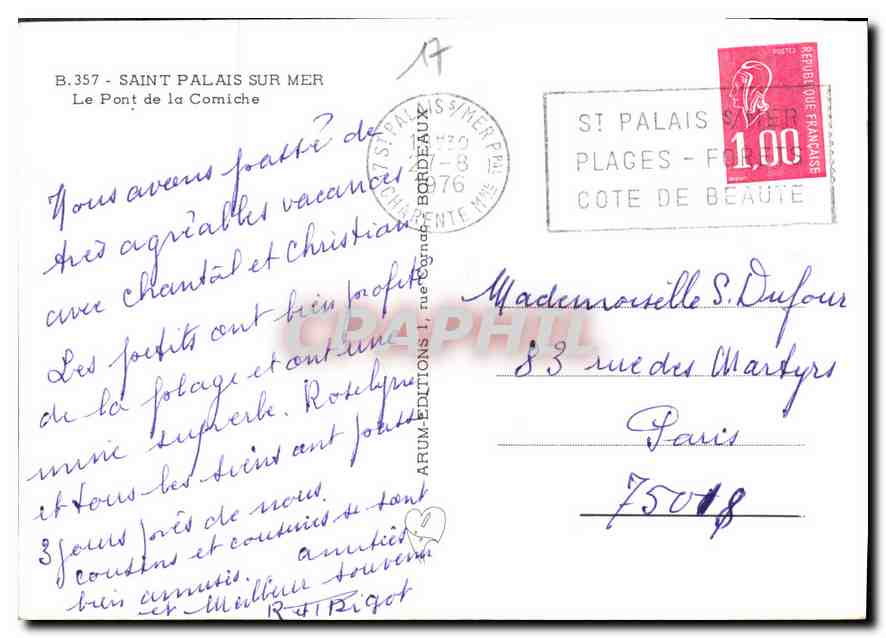 17
B.357 - SAINT PALAIS SUR MER
Le Pont de la Corniche
Nous avons passé de
très agréables vacances
avec Chantâl et Christian
Les petits ont bien profité
de la plage et ont une
mine superbe. Roselyne
et tous les siens ont passé
3 jours près de nous.
cousins et cousines se sont
bien amusés. amitiés
et Meilleur souvenir
R et H Rigot
ARUM-EDITIONS 1, rue Cornac BORDEAUX
17 ST PALAIS S/MER PPAL
27-8
1976
CHARENTE MME
ST PALAIS S/MER
PLAGES - FORETS
COTE DE BEAUTE
POSTES
REPUBLIQUE FRANÇAISE
1,00
Mademoiselle S. Dufour
83 rue des Martyrs
Paris
75018
CPAPHIL